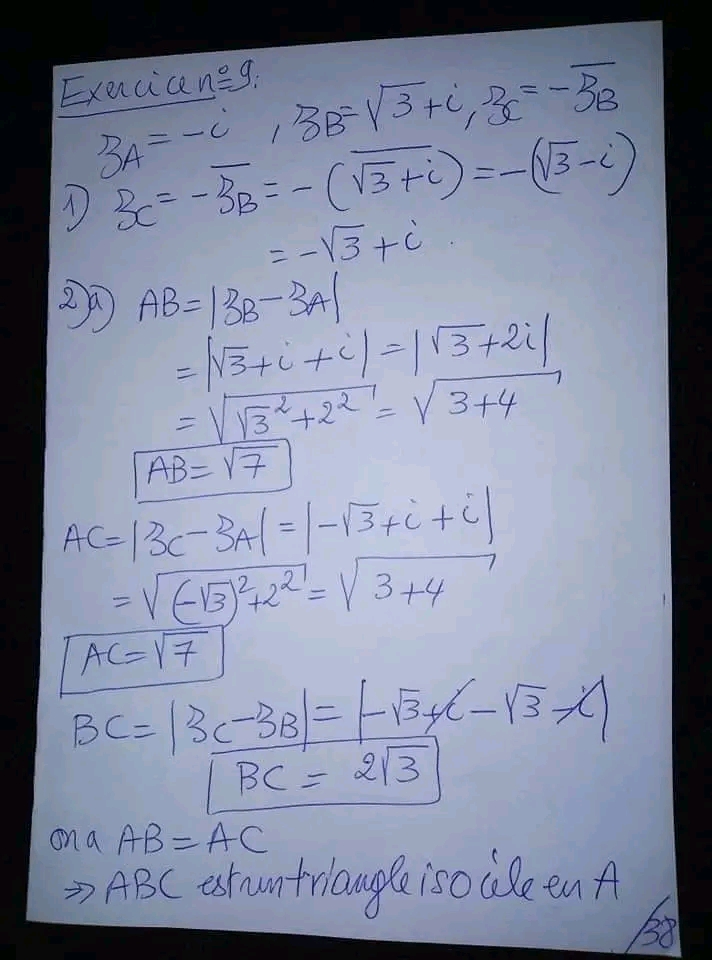 Exercice n°=9:
z_A = -i , z_B = √3 + i, z_C = -z̅_B
1) z_C = -z̅_B = -(\overline{√3 + i}) = -(√3 - i)
= -√3 + i .
2)a) AB = |z_B - z_A|
= |√3 + i + i| = |√3 + 2i|
= √(√3² + 2²) = √(3 + 4)
AB = √7
AC = |z_C - z_A| = |-√3 + i + i|
= √((-√3)² + 2²) = √(3 + 4)
AC = √7
BC = |z_C - z_B| = |-√3 + i - √3 - i|
BC = 2√3
on a AB = AC
⇒ ABC est un triangle isocèle en A
/38